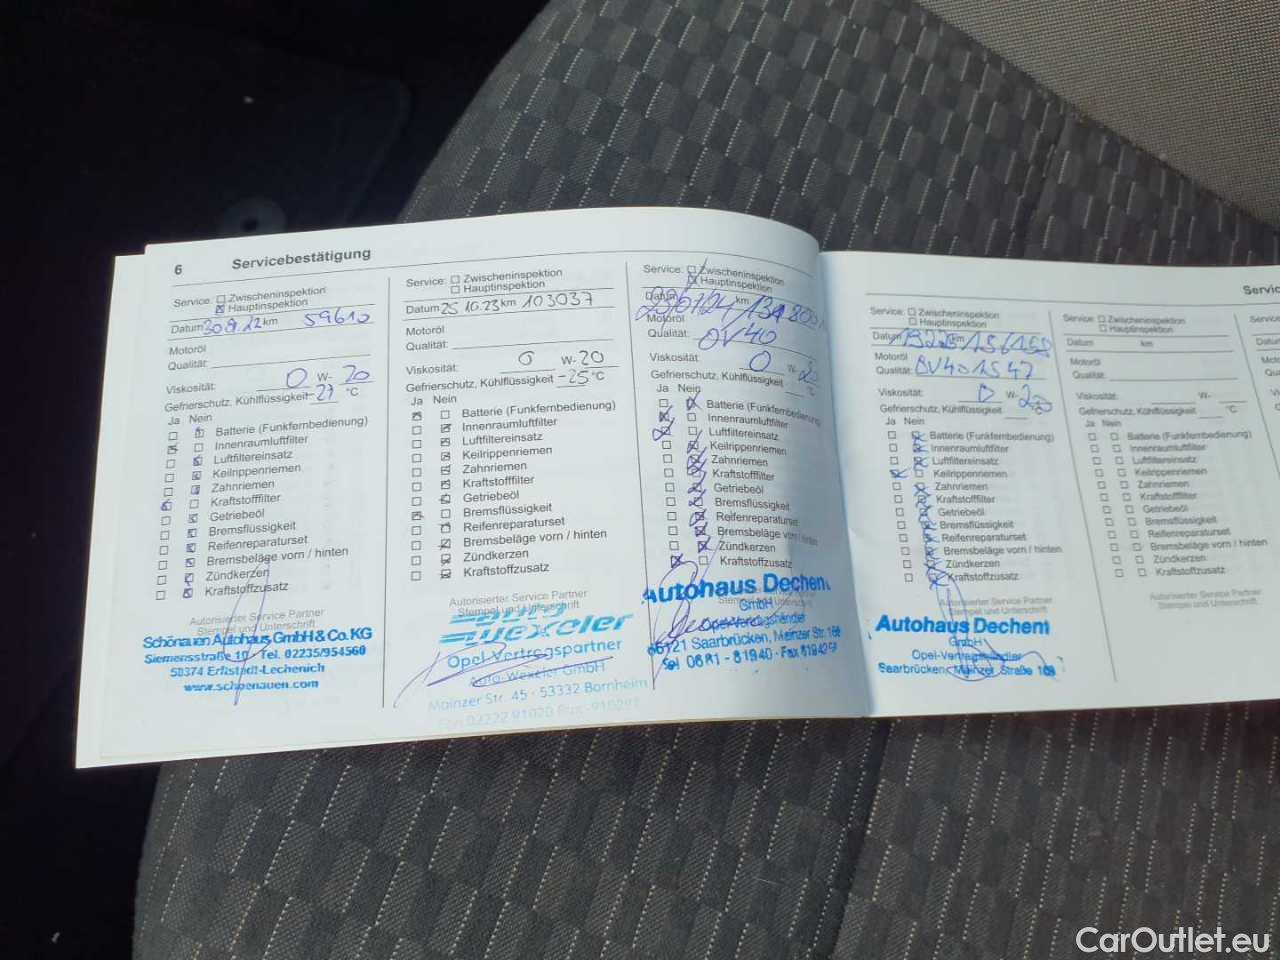 6 Servicebestätigung
Service: Zwischeninspektion
Hauptinspektion
Datum 30.9.22 km 59610
Motoröl
Qualität:
Viskosität: 0 W- 20
Gefrierschutz, Kühlflüssigkeit -27 °C
Ja Nein
Batterie (Funkfernbedienung)
Innenraumluftfilter
Luftfiltereinsatz
Keilrippenriemen
Zahnriemen
Kraftstofffilter
Getriebeöl
Bremsflüssigkeit
Reifenreparaturset
Bremsbeläge vorn / hinten
Zündkerzen
Kraftstoffzusatz
Autorisierter Service Partner
Stempel und Unterschrift
Schönauen Autohaus GmbH & Co. KG
Siemensstraße 10 · Tel. 02235/954560
50374 Erftstadt-Lechenich
www.schoenauen.com
Service: Zwischeninspektion
Hauptinspektion
Datum 25.10.23 km 103037
Motoröl
Qualität:
Viskosität: 0 W- 20
Gefrierschutz, Kühlflüssigkeit -25 °C
Ja Nein
Batterie (Funkfernbedienung)
Innenraumluftfilter
Luftfiltereinsatz
Keilrippenriemen
Zahnriemen
Kraftstofffilter
Getriebeöl
Bremsflüssigkeit
Reifenreparaturset
Bremsbeläge vorn / hinten
Zündkerzen
Kraftstoffzusatz
Autorisierter Service Partner
Stempel und Unterschrift
auto
wexeler
Opel-Vertragspartner
Auto-Wexeler GmbH
Mainzer Str. 45 · 53332 Bornheim
02222 91020
Service: Zwischeninspektion
Hauptinspektion
Datum km
Motoröl
Qualität: OV40
Viskosität: 0 W- 20
Gefrierschutz, Kühlflüssigkeit °C
Ja Nein
Batterie (Funkfernbedienung)
Innenraumluftfilter
Luftfiltereinsatz
Keilrippenriemen
Zahnriemen
Kraftstofffilter
Getriebeöl
Bremsflüssigkeit
Reifenreparaturset
Bremsbeläge vorn / hinten
Zündkerzen
Kraftstoffzusatz
Autohaus Dechent
GmbH
Opel-Vertragshändler
66121 Saarbrücken, Mainzer Str. 168
Tel 0681 - 81940 · Fax
Servic
Service: Zwischeninspektion
Hauptinspektion
Datum km
Motoröl
Qualität:
Viskosität: W-
Gefrierschutz, Kühlflüssigkeit
Ja Nein
Batterie (Funkfernbedienung)
Innenraumluftfilter
Luftfiltereinsatz
Keilrippenriemen
Zahnriemen
Kraftstofffilter
Getriebeöl
Bremsflüssigkeit
Reifenreparaturset
Bremsbeläge vorn / hinten
Zündkerzen
Kraftstoffzusatz
Autorisierter Service Partner
Stempel und Unterschrift
Autohaus Dechent
GmbH
Opel-Vertragshändler
Saarbrücken, Mainzer Straße 168
Service: Zwischeninspektion
Hauptinspektion
Datum km
Motoröl
Qualität:
Viskosität: W-
Gefrierschutz, Kühlflüssigkeit °C
Ja Nein
Batterie (Funkfernbedienung)
Innenraumluftfilter
Luftfiltereinsatz
Keilrippenriemen
Zahnriemen
Kraftstofffilter
Getriebeöl
Bremsflüssigkeit
Reifenreparaturset
Bremsbeläge vorn / hinten
Zündkerzen
Kraftstoffzusatz
Autorisierter Service Partner
Stempel und Unterschrift
CarOutlet.eu